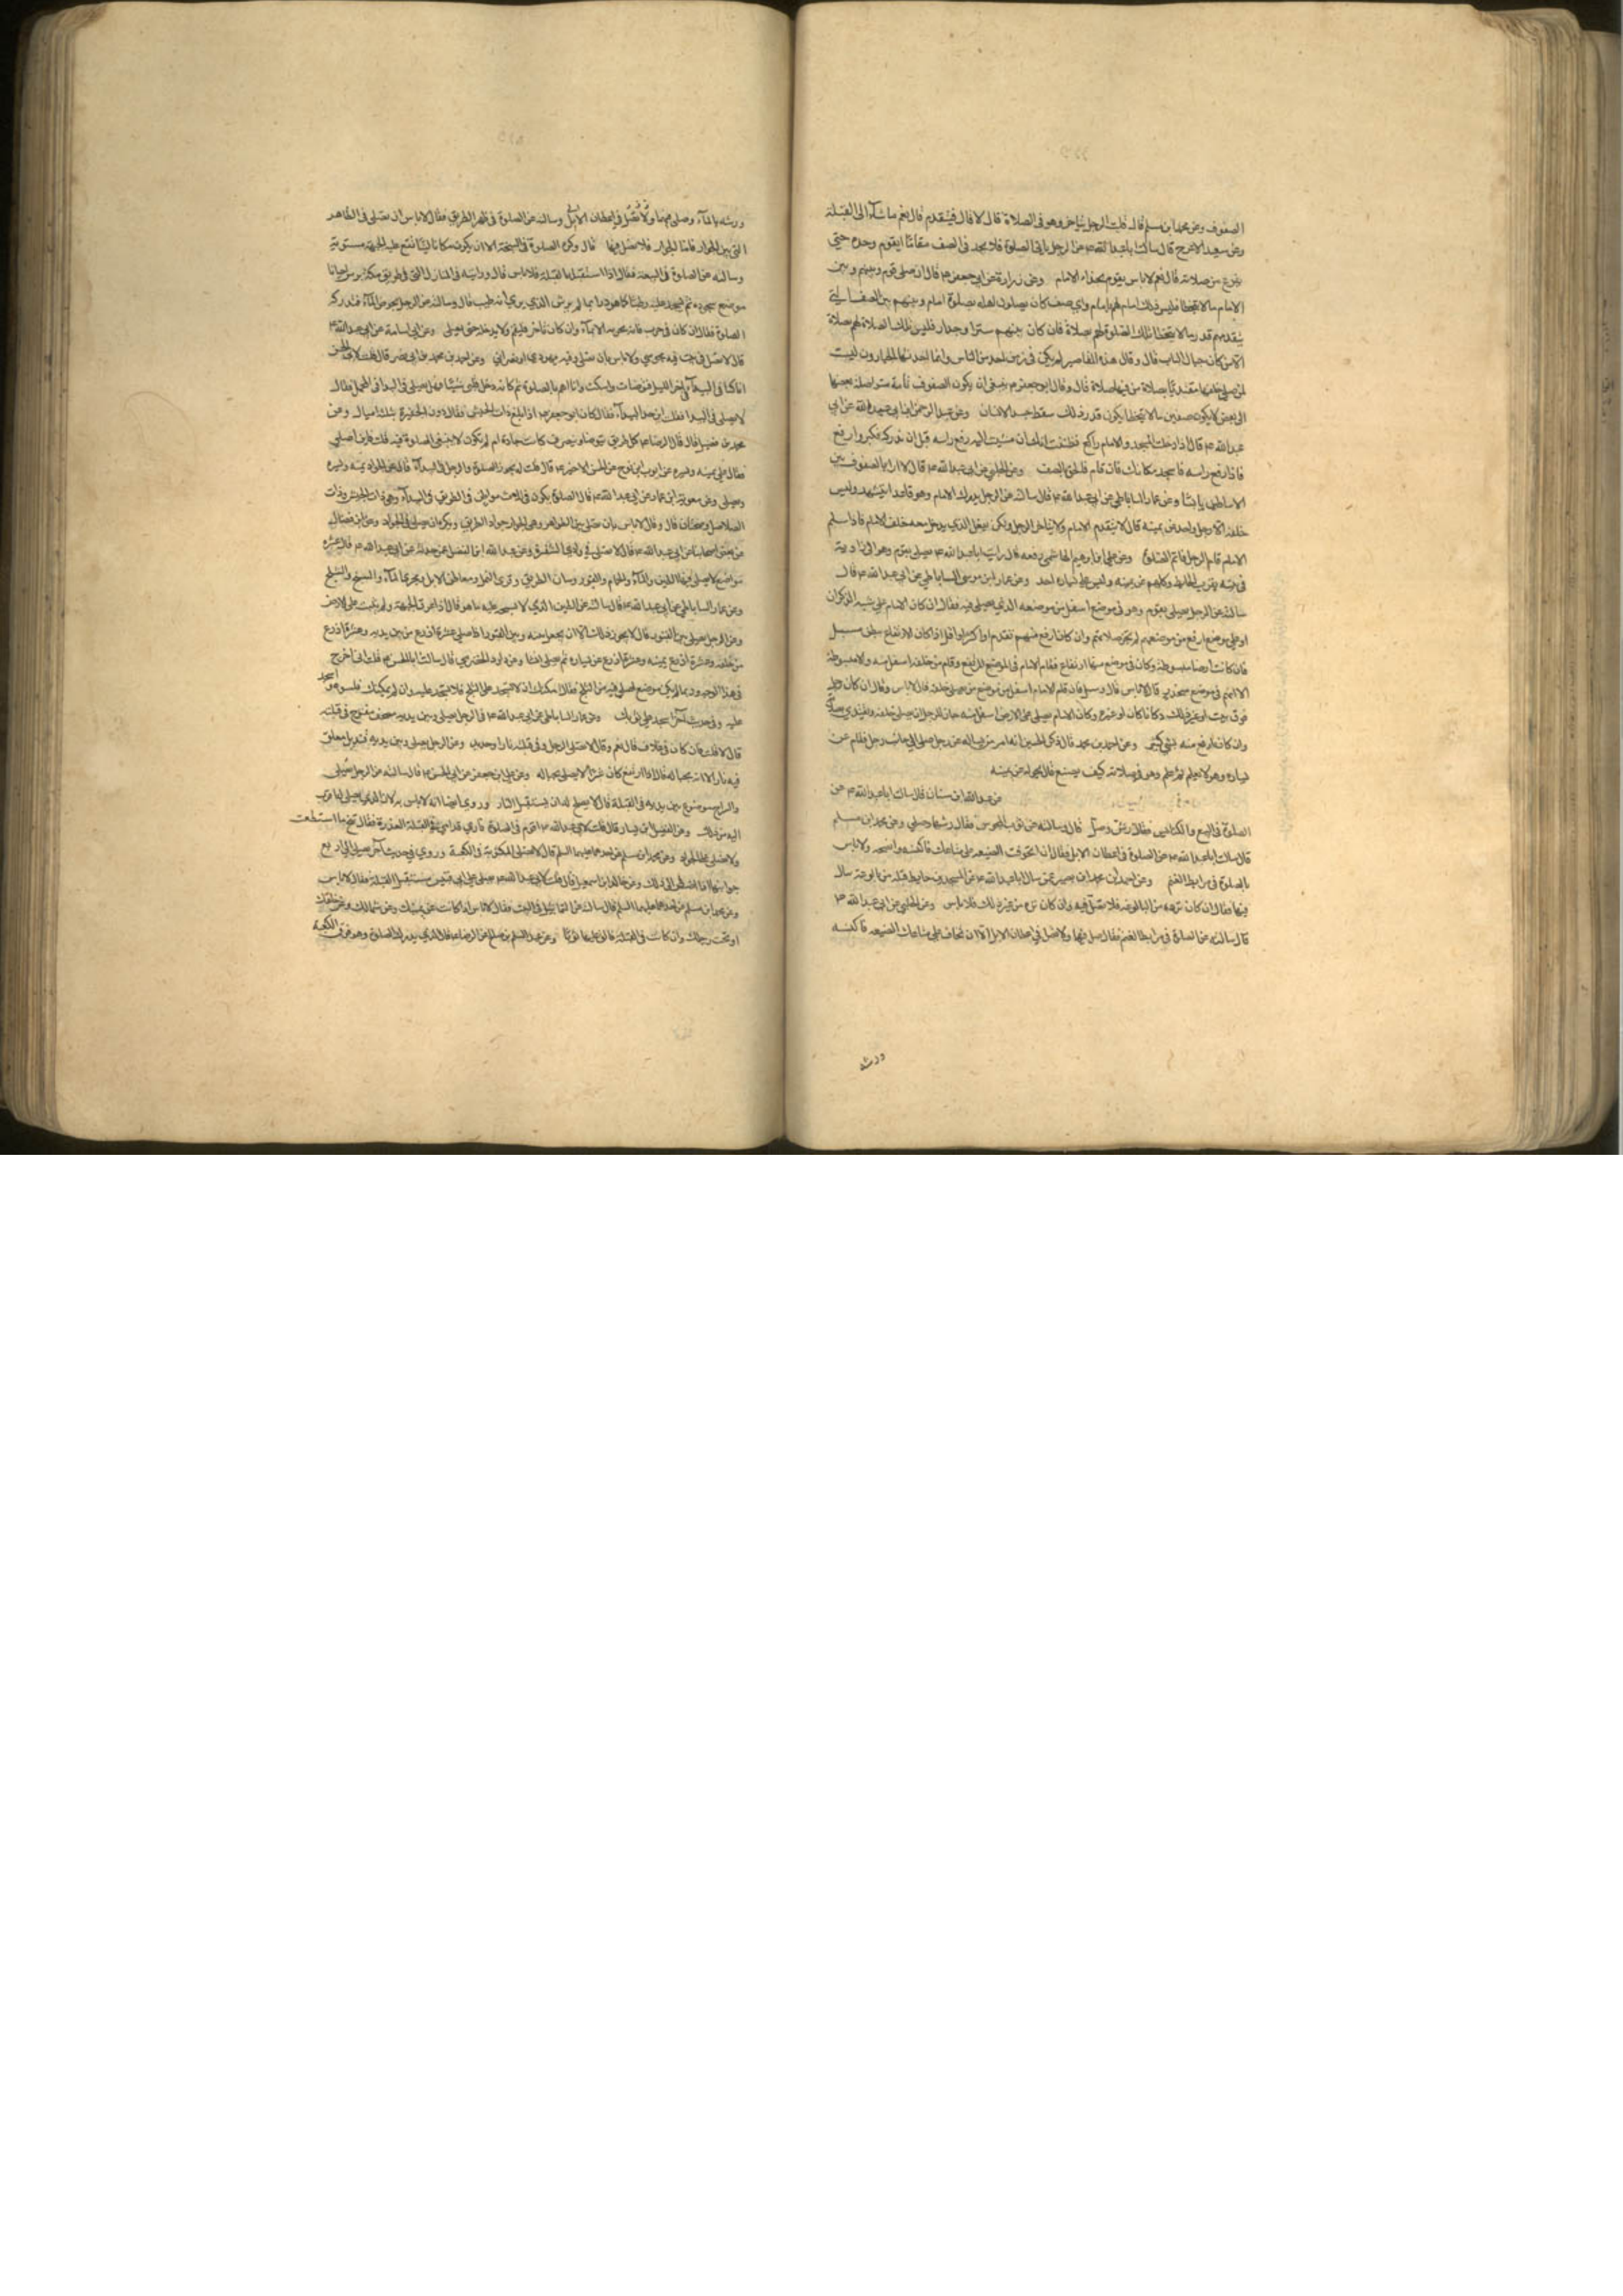 الصفوف وعن محمد بن مسلم قال قلت الرجل يتاخر وهو في الصلاة قال لا قال فيتقدم قال نعم ماشآء الى القبلة
وعن سعيد الاعرج قال سالت اباعبد الله ع عن الرجل ياتى الصلوة فلا يجد فى الصف مقاما ايقوم وحده حتى
يفرغ من صلاته قال نعم لاباس يقوم بحذاء الامام وعن زرارة عن ابي جعفر ع قال ان صلى قوم وبينهم وبين
الامام مالا يتخطا فليس ذلك امام لهم بامام واي صف كان يصلون اهله بصلوة امام وبينهم وبين الصف الذي
يتقدمهم قدر ما لا يتخطا فليس تلك الصلوة لهم صلاة فان كان بينهم سترا وجدار فليس تلك الصلاة لهم صلاة
الا من كان حيال الباب قال وقال هذه المقاصير لم يكن فى زمن احد من الناس وانما احدثها الجبارون ليست
لمن صلى خلفها مقتديا بصلاة من فيها صلاة قال وقال ابو جعفر ع ينبغى ان يكون الصفوف تامة متواصلة بعضها
الى بعض لا يكون صفين مالا يتخطا يكون قدر ذلك سقط جسد الانسان وعن عبد الرحمن ابن ابي عبد الله عن ابي
عبد الله ع قال اذا دخلت المسجد والامام راكع فظننت انك ان مشيت اليه رفع راسه قبل ان تدركه فكبر واركع
فاذا رفع راسه فاسجد مكانك فان قام فالحق بالصف وعن الحلبي عن ابي عبد الله ع قال لا ارى بالصفوف بين
الاساطين باسا وعن عمار الساباطي عن ابي عبد الله ع قال سالته عن الرجل يدرك الامام وهو قاعد يتشهد وليس
خلفه الا رجل واحد عن يمينه قال لا يتقدم الامام ولا يتاخر الرجل ولكن يقعد الذي يدخل معه خلف الامام فاذا سلم
الامام قام الرجل فاتم الصلوة وعن علي ابن ابرهيم الهاشمي رفعه قال رايت اباعبد الله ع يصلى بقوم وهو الى زاوية
فى بيته بقرب الحايط وكلهم عن يمينه وليس على يساره احد وعن عمار ابن موسى الساباطي عن ابي عبد الله ع قال
سالته عن الرجل يصلى بقوم وهو فى موضع اسفل من موضعه الذي يصلى فيه فقال ان كان الامام على شبه الدكان
او على موضع ارفع من موضعهم لم يجز صلاتهم وان كان ارفع منهم بقدر
فان كانت ارضا مبسوطة وكان فى موضع منها ارتفاع فقام الامام فى الموضع المرتفع وقام من خلفه اسفل منه والارض مبسوطة
الا انهم فى موضع منحدر قال لاباس قال وسئل فان قام الامام اسفل من موضع من يصلى خلفه قال لاباس وقال ان كان رجل
فوق بيت او غير ذلك دكانا كان او غيره وكان الامام يصلى على الارض اسفل منه جاز للرجل ان يصلى خلفه ويقتدي بصلاته
وان كان ارفع منه بشئ كثير وعن احمد بن محمد قال ذكر الحسين انه امر من يساله عن رجل صلى الى جانب رجل فقام عن
يساره وهو لا يعلم ثم علم وهو في صلاته كيف يصنع قال يحوله عن يمينه
عن عبد الله ابن سنان قال سالت اباعبد الله ع عن
الصلوة فى البيع والكنايس فقال رش وصل قال وسالته عن بيوت المجوس فقال رشها وصلى وعن محمد ابن مسلم
قال سالت اباعبد الله ع عن الصلوة فى اعطان الابل فقال ان تخوفت الضيعه على متاعك فاكنسه وانضحه ولا باس
بالصلوة فى مرابط الغنم وعن احمد ابن محمد ابن ابى نصر عمن سال اباعبد الله ع عن المسجد ينز حايط قبلته من بالوعة يبال
فيها فقال ان كان نزه من البالوعه فلا تصل فيه وان كان نزه من غير ذلك فلا باس وعن الحلبي عن ابي عبد الله ع
قال سالته عن الصلوة فى مرابط الغنم فقال صل فيها ولا تصل في اعطان الابل الا ان تخاف على متاعك الضيعه فاكنسه
ورشه
ورشه بالمآء وصلى فيها ولا تصل في اعطان الابل وسالته عن الصلوة فى ظهر الطريق فقال لاباس ان تصلى فى الظواهر
التي بين الجواد فاما الجواد فلا تصل فيها قال وكره الصلوة فى السبخة الا ان يكون مكانا لينا تقع عليه الجبهة مستوية
وسالته عن الصلوة فى البيعة فقال اذا استقبلت القبلة فلاباس قال ورايته فى المنازل التي فى طريق مكة يرش احيانا
موضع جبهته ثم يسجد عليه رطبا كما هو وربما لم يرش الذي يرى انه طيب قال وسالته عن الرجل يخوض المآء فتدركه
الصلوة فقال ان كان فى حرب فانه يجزيه الايمآء وان كان تاجرا فليقم ولا يدخله حتى يصلى وعن ابي اسامة عن ابي عبد الله ع
قال لا تصل فى بيت فيه مجوسي ولا باس بان تصلى وفيه يهودي او نصراني وعن احمد بن محمد بن ابي نصر قال قلت لابي الحسن
انا كنا فى البيدآء فى اخر الليل فتوضات واستكت وانا اهم بالصلوة ثم كانه دخل قلبي شئ فهل يصلى فى البيدا فى المحمل فقال
لا تصلى فى البيدا فقلت اين حد البيدآء فقال كان ابو جعفر ع اذا بلغ ذات الجيش فقال دون الحفيرة بثلث اميال وعن
محمد بن فضيل قال قال الرضا ع كل طريق يتوطا ويتطرق كانت جادة ام لم تكون لا ينبغى الصلوة فيه قلت فاين اصلي
فقال على يمينه ويسره وعن ايوب ابن نوح عن ابي الحسن الاخير ع قال قلت له يحضر الصلوة والرجل فى البيدآء قال يتنحى عن الجواد يمنه ويسره
ويصلى وعن معوية ابن عمار عن ابي عبد الله ع قال الصلوة يكون فى ثلث مواطن فى الطريق فى البيدآء وهى ذات الجيش وذات
الصلاصل وضجنان قال وقال لا باس بان تصلى بين الظواهر وهى الجواد جواد الطريق ويكره ان يصلى فى الجواد وعن ابن فضال
عن بعض اصحابنا عن ابي عبد الله ع قال لا تصلى في وادي الشقرة وعن عبد الله ابن الفضل عمن حدثه عن ابي عبد الله ع قال عشره
مواضع لا يصلى فيها الطين والمآء والحمام والقبور ومسان الطريق وقرى النمل ومعاطن الابل ومجرى المآء والسبخ والثلج
وعن عمار الساباطي عن ابي عبد الله ع قال سالته عن الطين الذي لا يسجد عليه ما هو قال اذا غرق الجبهة ولم تثبت على الارض
وعن الرجل يصلى بين القبور قال لا يجوز ذلك الا ان يجعل بينه وبين القبور اذا صلى عشرة اذرع من بين يديه وعشرة اذرع
من خلفه وعشرة اذرع يمينه وعشرة اذرع عن يساره ثم يصلى انشا وعن داود الصرمي قال سالت ابا الحسن ع قلت انى اخرج
فى هذا الوجه وربما لم يكن موضع اصلي فيه من الثلج فقال ان امكنك ان لا تسجد على الثلج فلا تسجد عليه وان لم يمكنك فسوه واسجد
عليه وفى حديث آخر اسجد على ثوبك وعن عمار الساباطي عن ابي عبد الله ع فى الرجل يصلى وبين يديه مصحف مفتوح فى قبلته
قال لا قلت فان كان فى غلاف قال نعم وقال لا تصلى الرجل وفى قبلته نار او حديد وعن الرجل يصلى وبين يديه قنديل معلق
فيه نار الا انه بحياله قال اذا ارتفع كان شرا لا يصلى بحياله وعن علي ابن جعفر عن ابي الحسن ع قال سالته عن الرجل يصلى
والسراج موضوع بين يديه فى القبلة قال لا يصلح له ان يستقبل النار وروي ايضا انه لا باس به لان الذي يصلى له اقرب
اليه من ذلك وعن الفضيل ابن يسار قال قلت لابي عبد الله ع اقوم فى الصلوة فارى قدامي فى القبلة العذرة فقال تنح عنها ما استطعت
ولا تصلى على الجواد وعن محمد ابن مسلم عن احدهما عليهما السلم قال لا تصلى المكتوبة فى الكعبة وروي في حديث آخر يصلى الى اربع
جوانبها اذا اضطر الى ذلك وعن خالد ابن اسمعيل قال قلت لابي عبد الله ع يصلى على ابي قبيس مستقبل القبلة فقال لاباس
وعن محمد ابن مسلم عن احدهما عليهما السلم قال سالته عن التماثيل فى البيت فقال لاباس اذا كانت عن يمينك وعن شمالك وعن خلفك
او تحت رجلك وان كانت فى القبلة فالق عليها ثوبا وعن عبد السلم بن صالح عن الرضا ع قال فى الذي يدركه الصلوة وهو فوق الكعبة